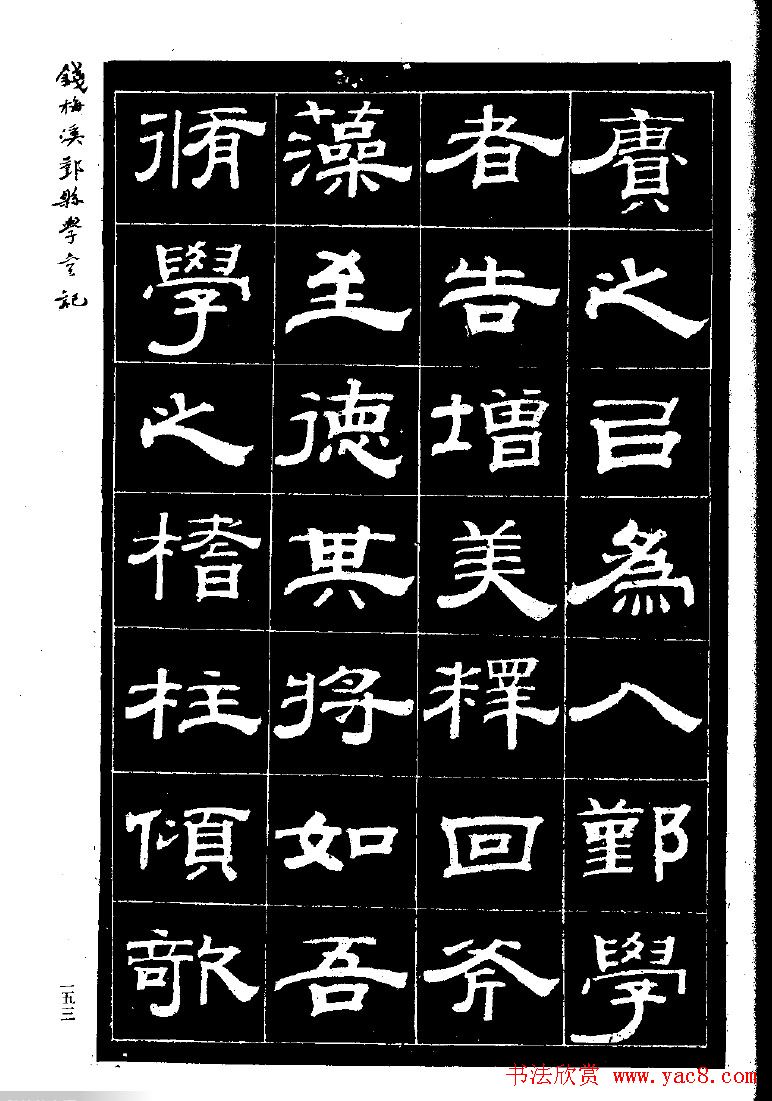 賡之㠯爲入鄞學
者告增美釋回斧
藻至德其將如吾
脩學之榰柱傾欹
錢梅溪鄞縣學宮記
一五三
书法欣赏 www.yac8.com